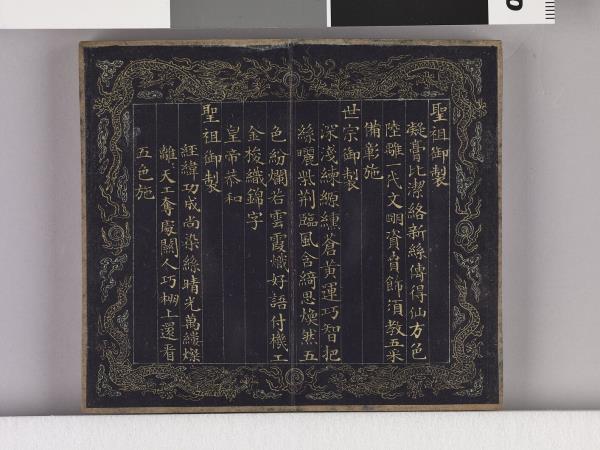 聖祖御製
凝膏比潔絡新絲傳得仙方色
陸離一代文明資賁飾須教五采
備彰施
世宗御製
深淺練緪纁蒼黃運巧智把
絲曬紫荊臨風含綺思煥然五
色紛爛若雲霞熾好語付機工
金梭織錦字
皇帝恭和
聖祖御製
經緯功成尚染絲晴光萬縷燦
離離天工奪處關人巧棚上還看
五色施